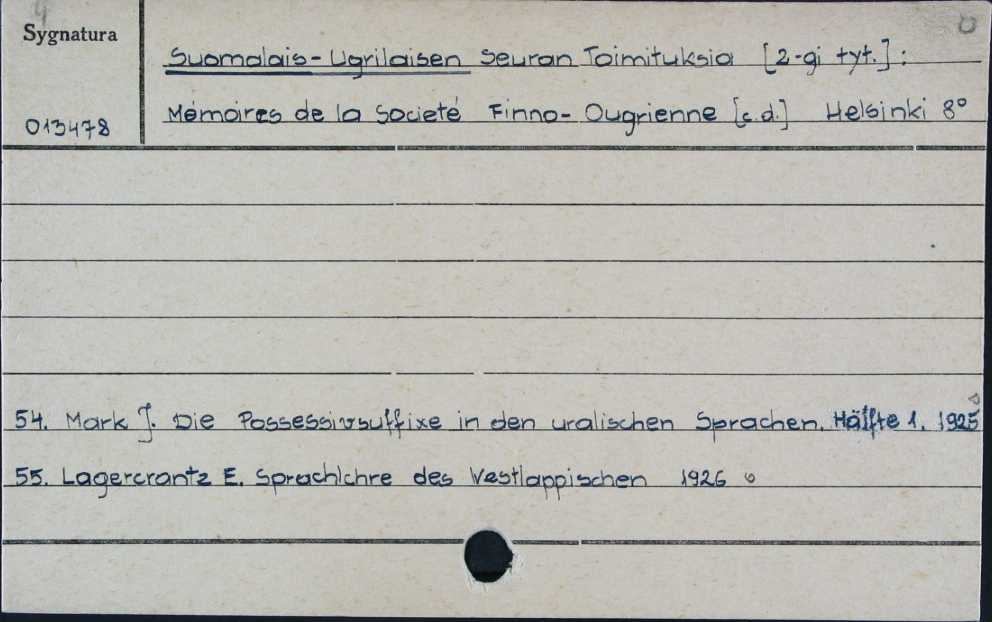 Sygnatura
013478
Suomalais-Ugrilaisen Seuran Toimituksia [2-gi tyt.]:
Mémoires de la Societé Finno-Ougrienne [c.d.] Helsinki 8°
54. Mark J. Die Possessivsuffixe in den uralischen Sprachen. Hälfte 1. 1925
55. Lagercrantz E. Sprachlehre des Westlappischen 1926